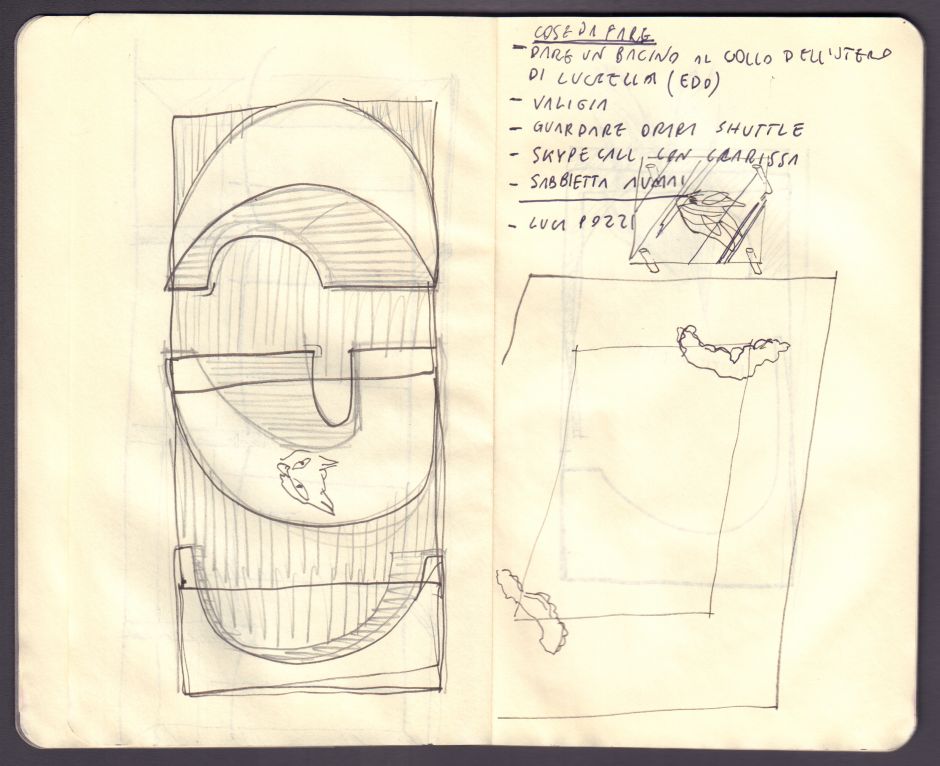 COSE DA FARE
- DARE UN BACINO AL COLLO DELL'UTERO
DI LUCRELLA (EDO)
- VALIGIA
- GUARDARE ORARI SHUTTLE
- SKYPE CALL CON CLARISSA
- SABBIETTA
- LUCI POZZI